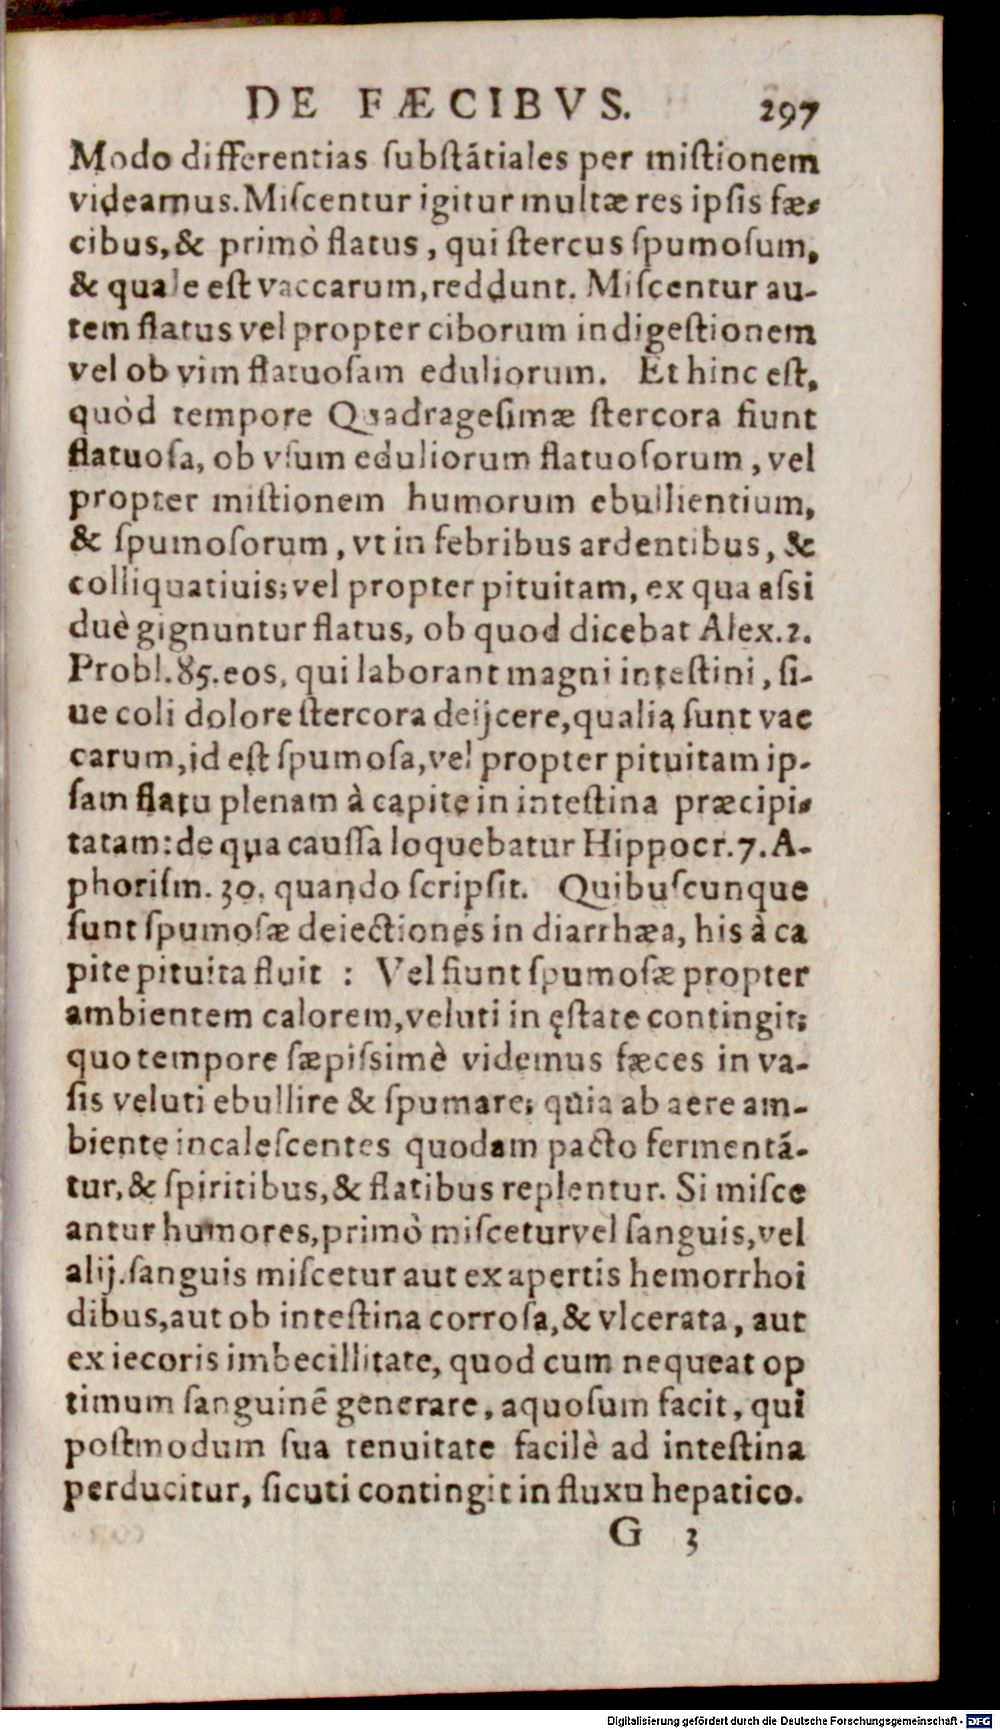 DE FÆCIBVS. 297
Modo differentias ſubſtãtiales per miſtionem
videamus. Miſcentur igitur multæ res ipſis fæ-
cibus, & primò flatus, qui ſtercus ſpumoſum,
& quale eſt vaccarum, reddunt. Miſcentur au-
tem flatus vel propter ciborum indigeſtionem
vel ob vim flatuoſam eduliorum. Et hinc eſt,
quòd tempore Quadrageſimæ ſtercora fiunt
flatuoſa, ob vſum eduliorum flatuoſorum, vel
propter miſtionem humorum ebullientium,
& ſpumoſorum, vt in febribus ardentibus, &
colliquatiuis; vel propter pituitam, ex qua aſſi
duè gignuntur flatus, ob quod dicebat Alex. 2.
Probl. 85. eos, qui laborant magni inteſtini, ſi-
ue coli dolore ſtercora deijcere, qualia ſunt vac
carum, id eſt ſpumoſa, vel propter pituitam ip-
ſam flatu plenam à capite in inteſtina præcipi-
tatam: de qua cauſſa loquebatur Hippocr. 7. A-
phoriſm. 30. quando ſcripſit. Quibuſcunque
ſunt ſpumoſæ deiectiones in diarrhæa, his à ca
pite pituita fluit : Vel fiunt ſpumoſæ propter
ambientem calorem, veluti in ęſtate contingit;
quo tempore ſæpiſſimè videmus fæces in va-
ſis veluti ebullire & ſpumare; quia ab aere am-
biente incaleſcentes quodam pacto fermentã-
tur, & ſpiritibus, & flatibus replentur. Si miſce
antur humores, primò miſcetur vel ſanguis, vel
alij. ſanguis miſcetur aut ex apertis hemorrhoi
dibus, aut ob inteſtina corroſa, & vlcerata, aut
ex iecoris imbecillitate, quod cum nequeat op
timum ſanguinẽ generare, aquoſum facit, qui
poſtmodum ſua tenuitate facilè ad inteſtina
perducitur, ſicuti contingit in fluxu hepatico.
G 3
Digitalisierung gefördert durch die Deutsche Forschungsgemeinschaft - DFG